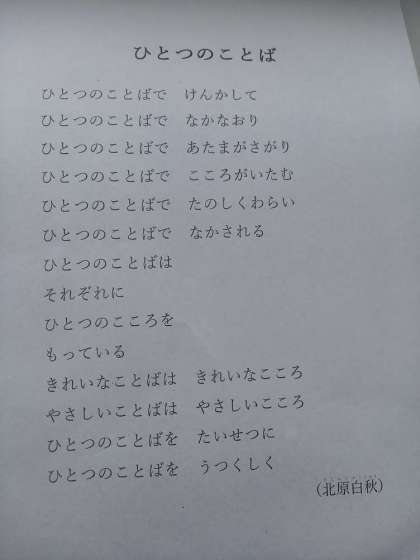 ひとつのことば
ひとつのことばで　けんかして
ひとつのことばで　なかなおり
ひとつのことばで　あたまがさがり
ひとつのことばで　こころがいたむ
ひとつのことばで　たのしくわらい
ひとつのことばで　なかされる
ひとつのことばは
それぞれに
ひとつのこころを
もっている
きれいなことばは　きれいなこころ
やさしいことばは　やさしいこころ
ひとつのことばを　たいせつに
ひとつのことばを　うつくしく
（北原白秋）